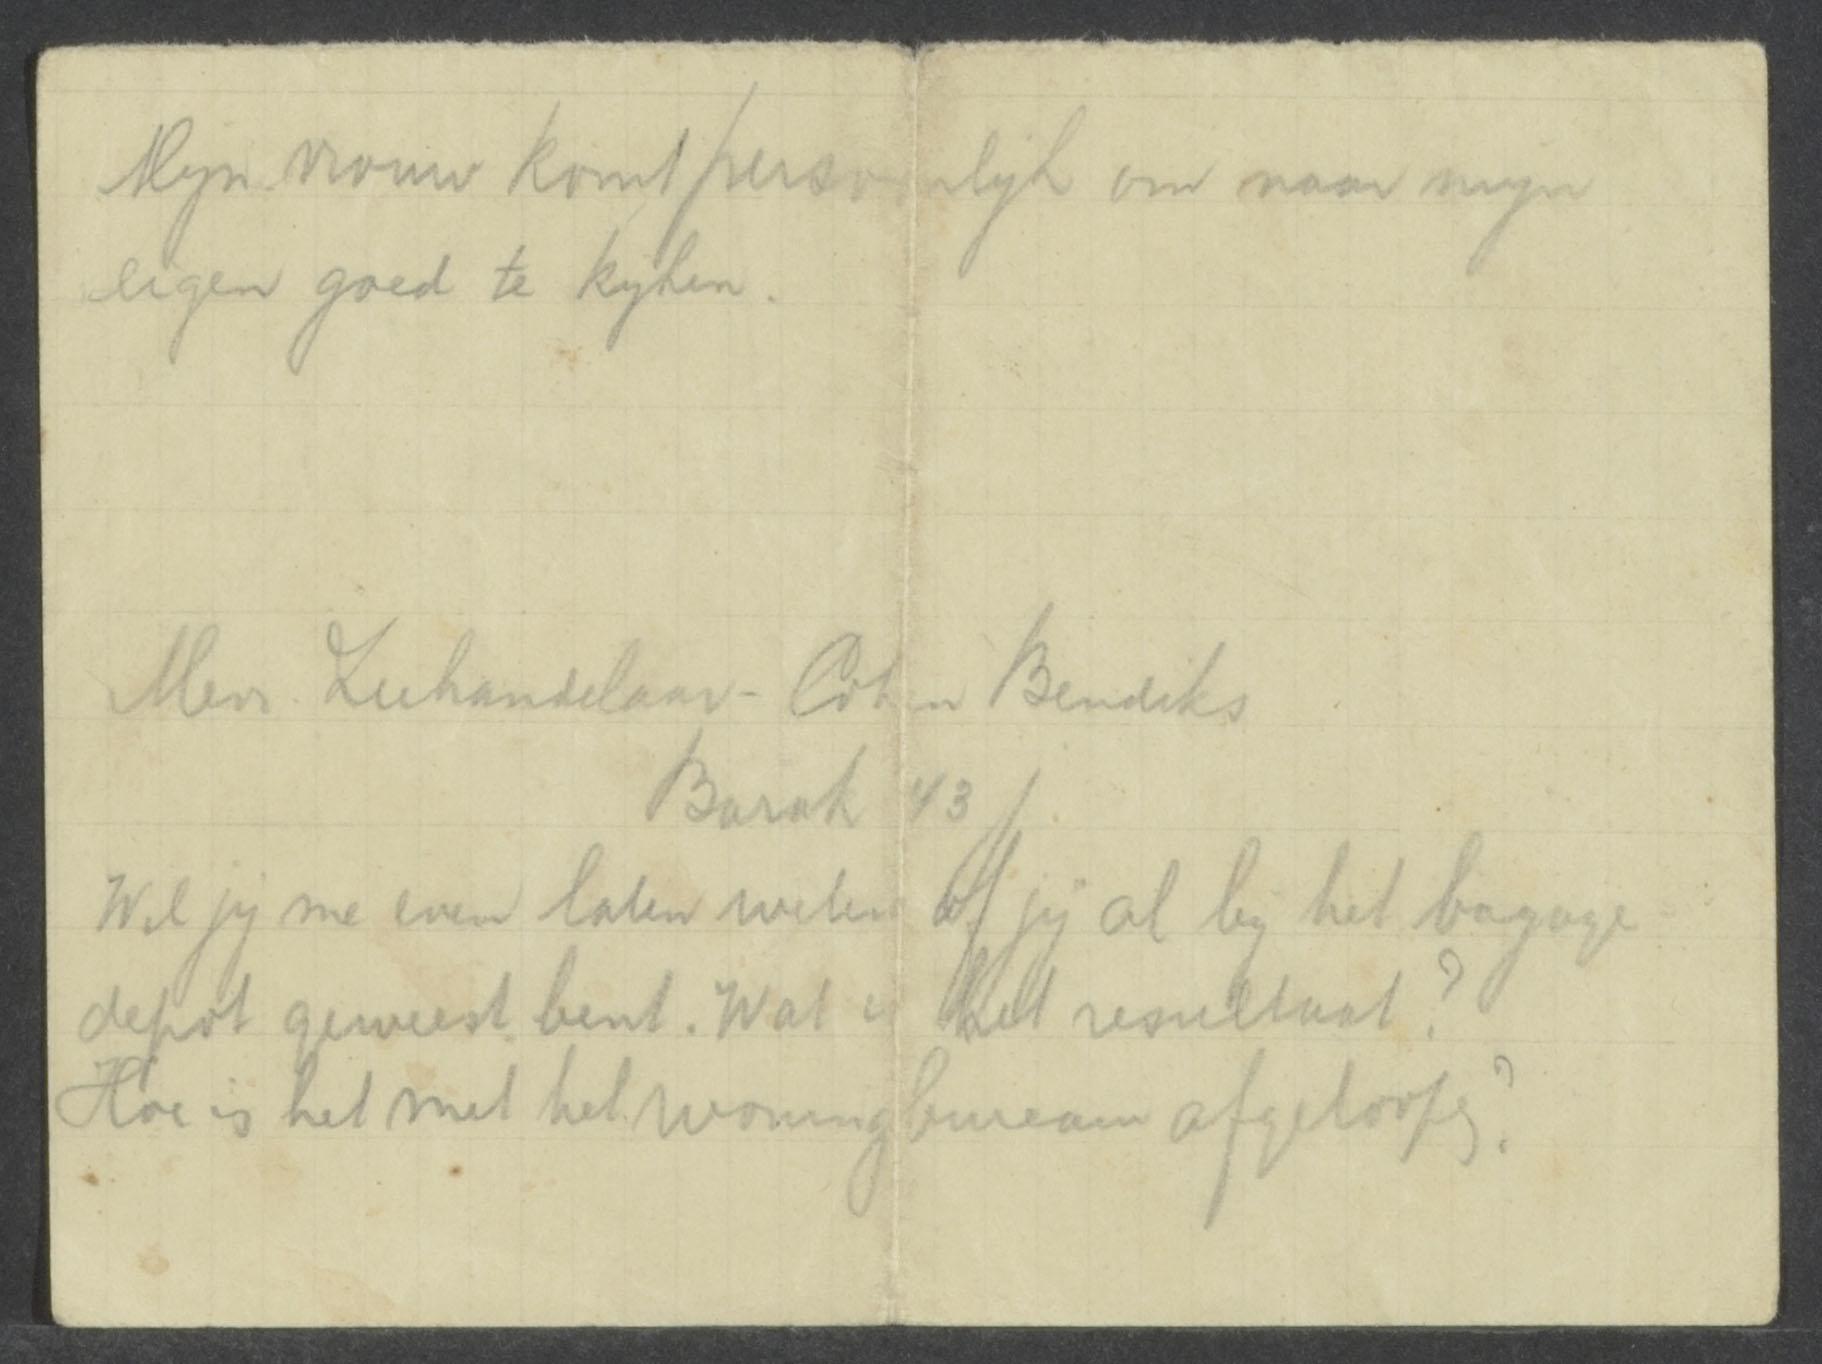 Mijn vrouw komt persoonlijk om naar mijn
eigen goed te kijken.
Mevr. Zeehandelaar - Cohen Bendiks
Barak 43
Wil jij me even laten weten of jij al bij het bagage
depot geweest bent. Wat is het resultaat?
Hoe is het met het woningbureau afgelopen?